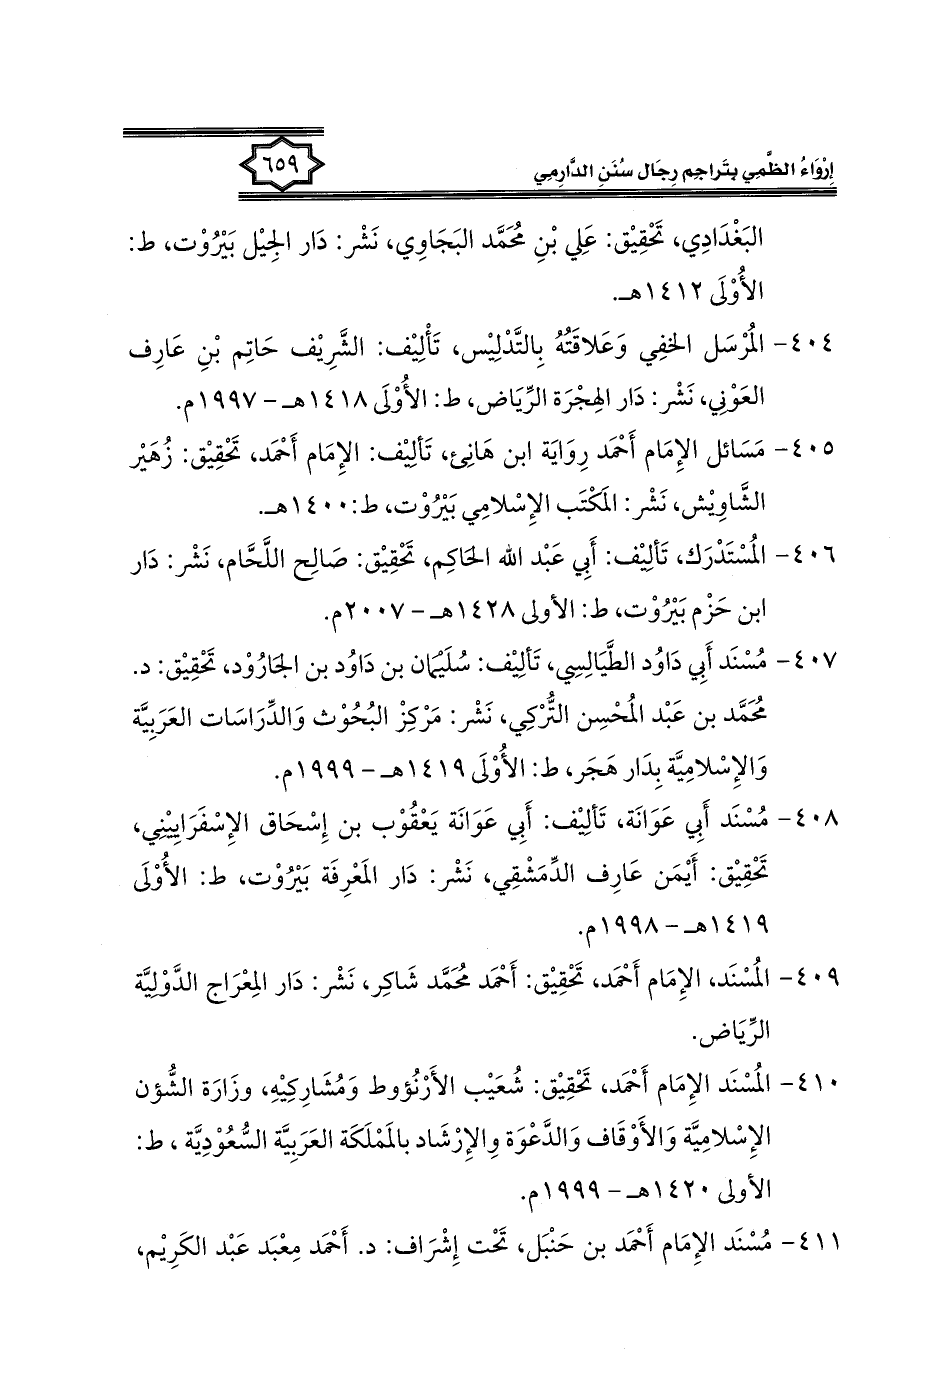 إِرْوَاءُ الظَّمِي بِتَرَاجِم رِجَال سُنَنِ الدَّارِمِي
٦٥٩
البَغْدَادِي، تَحْقِيْق: عَلِي بْنِ مُحَمَّد البَجَاوِي، نَشْر: دَار الجِيْل بَيْرُوْت، ط:
الأُوْلَى ١٤١٢هـ.
٤٠٤- المُرْسَل الخَفِي وَعَلاقَتُهُ بِالتَّدْلِيْس، تَأْلِيْف: الشَّرِيْف حَاتِم بْنِ عَارِف
العَوْنِي، نَشْر: دَار الهِجْرَة الرِّيَاض، ط: الأُوْلَى ١٤١٨هـ - ١٩٩٧م.
٤٠٥- مَسَائل الإِمَام أَحْمَد رِوَاية ابن هَانِئ، تَألِيْف: الإِمَام أَحْمَد، تَحْقِيْق: زُهَيْر
الشَّاوِيْش، نَشْر: المَكْتَب الإِسْلامِي بَيْرُوْت، ط: ١٤٠٠هـ.
٤٠٦- المُسْتَدْرَك، تَألِيْف: أَبِي عَبْد الله الحَاكِم، تَحْقِيْق: صَالِح اللَّحَّام، نَشْر: دَار
ابن حَزْم بَيْرُوْت، ط: الأولى ١٤٢٨هـ - ٢٠٠٧م.
٤٠٧- مُسْنَد أَبِي دَاوُد الطَّيَالِسِي، تَألِيْف: سُلَيْمَان بن دَاوُد بن الجَارُوْد، تَحْقِيْق: د.
مُحَمَّد بن عَبْد المُحْسِن التُّرْكِي، نَشْر: مَرْكِز البُحُوْث وَالدِّرَاسَات العَرَبِيَّة
وَالإِسْلامِيَّة بِدَار هَجَر، ط: الأُوْلَى ١٤١٩هـ - ١٩٩٩م.
٤٠٨- مُسْنَد أَبِي عَوَانَة، تَألِيْف: أَبِي عَوَانَة يَعْقُوْب بن إِسْحَاق الإِسْفَرَايِيْنِي،
تَحْقِيْق: أَيْمَن عَارِف الدِّمَشْقِي، نَشْر: دَار المَعْرِفَة بَيْرُوْت، ط: الأُوْلَى
١٤١٩هـ - ١٩٩٨م.
٤٠٩- المُسْنَد، الإِمَام أَحْمَد، تَحْقِيْق: أَحْمَد مُحَمَّد شَاكِر، نَشْر: دَار المِعْرَاج الدَّوْلِيَّة
الرِّيَاض.
٤١٠- المُسْنَد الإِمَام أَحْمَد، تَحْقِيْق: شُعَيْب الأَرْنُؤوط وَمُشَارِكِيْهِ، وزَارَة الشُّؤن
الإِسْلامِيَّة وَالأَوْقَاف وَالدَّعْوَة والإِرْشَاد بالمَمْلَكَة العَرَبِيَّة السُّعُوْدِيَّة ، ط:
الأولى ١٤٢٠هـ - ١٩٩٩م.
٤١١- مُسْنَد الإِمَام أَحْمَد بن حَنْبَل، تَحْت إِشْرَاف: د. أَحْمَد مِعْبَد عَبْد الكَرِيْم،